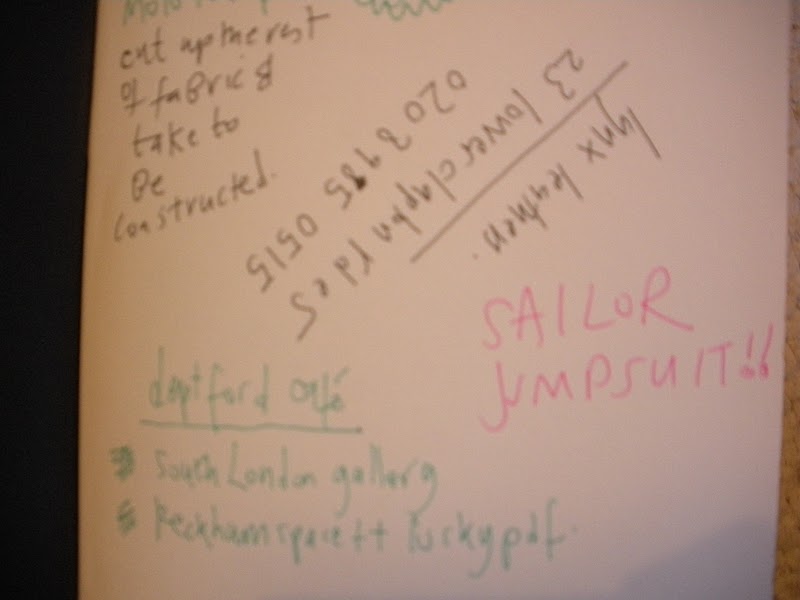 cut up the rest
of fabric &
take to
be
constructed.
lynx leathers.
23 lower clapton rd e5
020 8985 0515
SAILOR
JUMPSUIT!!
deptford café
South London gallery
Peckham space ++ luckypdf.